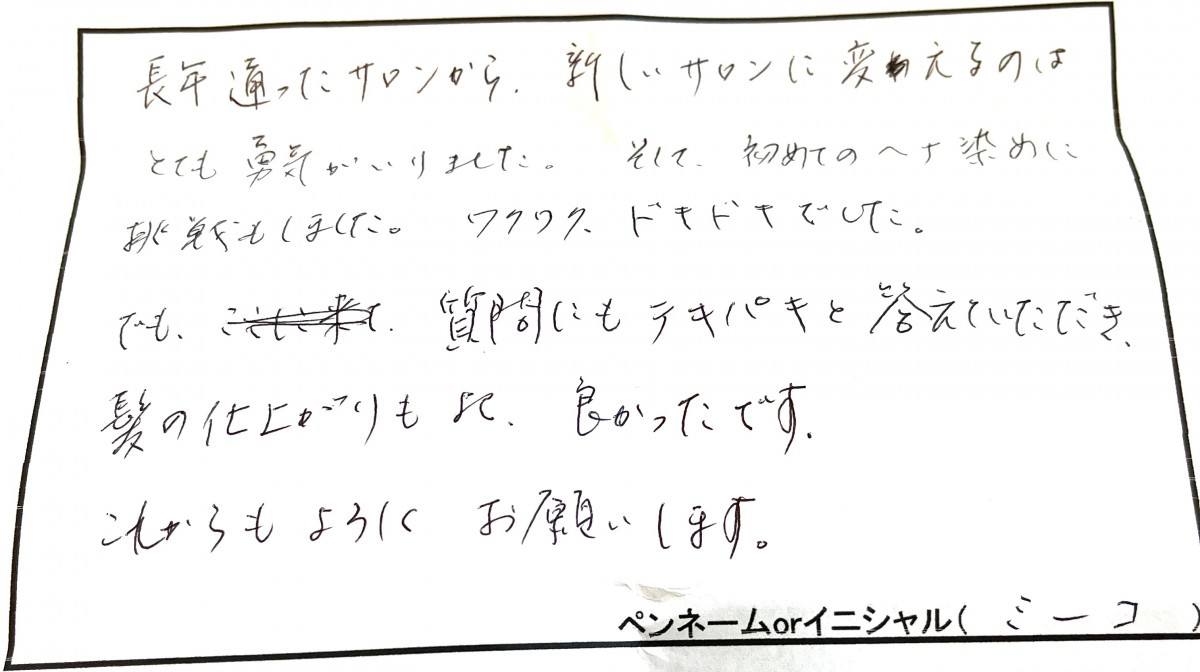 長年通ったサロンから、新しいサロンに変えるのは
とても勇気がいりました。そして、初めてのヘナ染めに
挑戦もしました。ワクワク、ドキドキでした。
でも、質問にもテキパキと答えていただき、
髪の仕上がりもよく、良かったです。
これからもよろしくお願いします。
ペンネームorイニシャル(ミーコ)